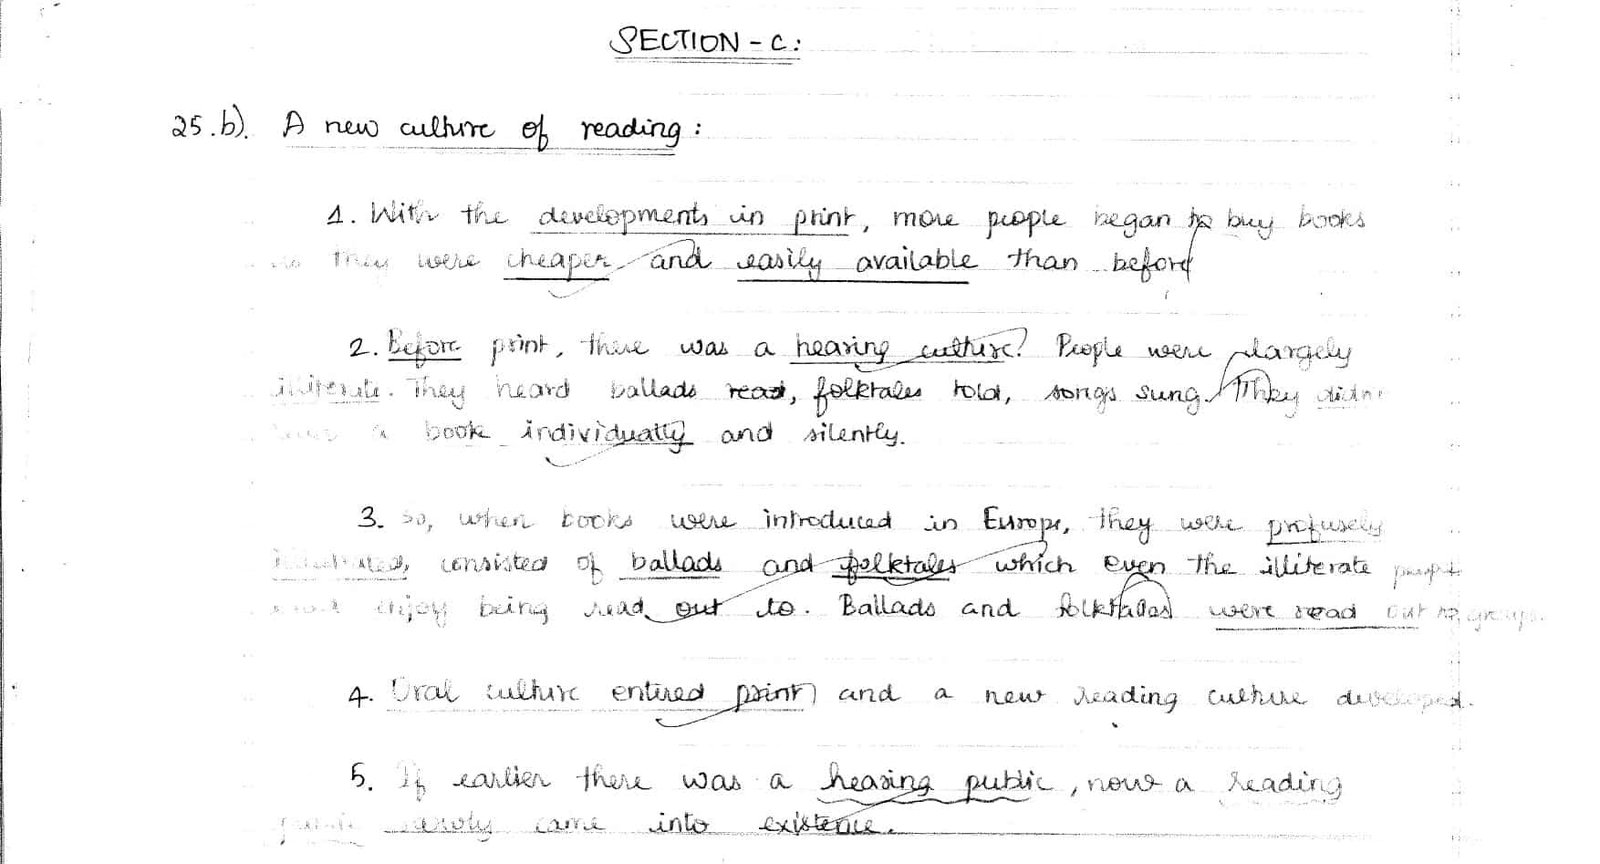 SECTION - C:
25.b). A new culture of reading:
1. With the developments in print, more people began to buy books
they were cheaper and easily available than before
2. Before print, there was a hearing culture. People were largely
illiterate. They heard ballads read, folktales told, songs sung. They didn
a book individually and silently.
3. So, when books were introduced in Europe, they were profusely
illustrated, consisted of ballads and folktales which even the illiterate people
enjoy being read out to. Ballads and folktales were read out to groups.
4. Oral culture entired print and a new reading culture developed.
5. If earlier there was a hearing public, now a reading
public came into existence.